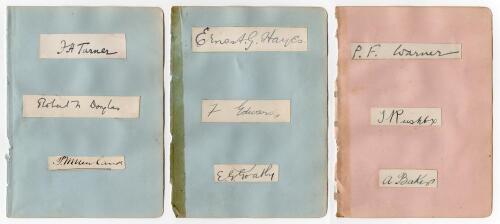 F A Turner
Robert N Douglas
Ernest G. Hayes.
F Edwards
E G Goatly
P. F. Warner
T Rushby
A Baker